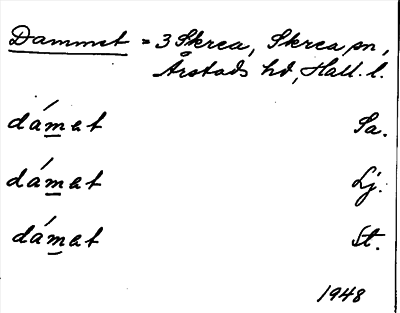 Dammet = 3 Skrea, Skrea sn,
Årstads hd, Hall. l.
dámat Sa.
dámat Lj.
dámat St.
1948